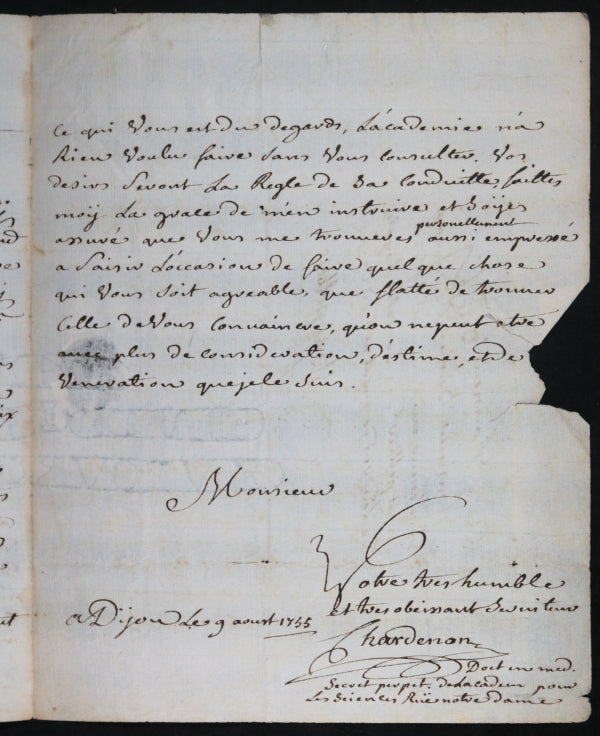 ce qui Vous est du degards, L'academie n'a
Rien Voulu faire sans Vous consulter. Vos
desirs Seront La Regle de Sa Conduitte, faittes
moÿ La grace de m'en instruire et Soÿes
assuré que Vous me trouveres personellement aussi empressé
a Saisir L'occasion de faire quelque chose
qui Vous soit agreable, que flatté de trouver
Celle de Vous Convaincre, qu'on ne peut etre
avec plus de Consideration, d'estime, et de
Veneration que je le suis.
Monsieur
Votre tres humble
et tres obeissant Serviteur
a Dijon Le 9 aoust 1755
Chardenon
Doct en med.
Secret perpet. de Lacadem pour
Les Sciences Rüe notre dame